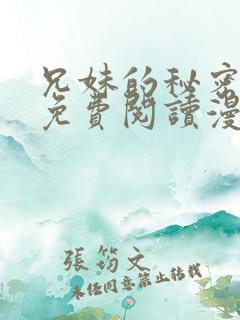 兄妹的秘密
免費閱讀漫
張筠文
未經同意禁止轉載